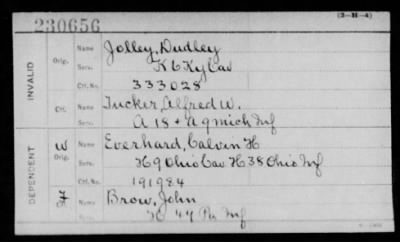 230656 (3-H-4)
INVALID
Orig. Name Jolley, Dudley
Serv. K 6 Ky Cav
Ctf. No. 333028
Ctf. Name Tucker, Alfred W.
A 18 + A 9 Mich Inf
DEPENDENT
W Orig. Name Everhard, Calvin H
Serv. H 9 Ohio Cav H 38 Ohio Inf
Ctf. No. 191984
Ctf. Name Brow, John
47 Pa Inf